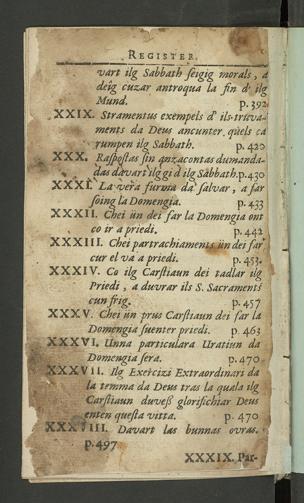 REGISTER.
vart ilg Sabbath seigig morals, a
deig cuzar antroqua la fin d' ilg
Mund. p. 392
XXIX. Stramentus exempels d' ils-truva-
ments da Deus ancunter quels ca
rumpen ilg Sabbath. p. 420
XXX. Raspostas sin anzacontas dumanda-
das davart ilg gi d ilg Sabbath. p. 430
XXXI. La vera furma da salvar, a far
soing la Domengia. p. 433
XXXII. Chei ün dei far la Domengia ont
co ir a priedi. p. 442
XXXIII. Chei partrachiaments ün dei far
cur el va a priedi. p. 453.
XXXIV. Co ilg Carstiaun dei tadlar ilg
Priedi, a duvrar ils S. Sacraments
cun frig. p. 457
XXXV. Chei ün prus Carstiaun dei far la
Domengia suenter priedi. p. 463
XXXVI. Unna particulara Uratiun da
Domengia sera. p. 470
XXXVII. Ilg Exercizi Extraordinari da
la temma da Deus tras la quala ilg
Carstiaun duvess glorifichiar Deus
enten questa vitta. p. 470
XXXVIII. Davart las bunnas ovras.
p. 497
XXXIX. Par-